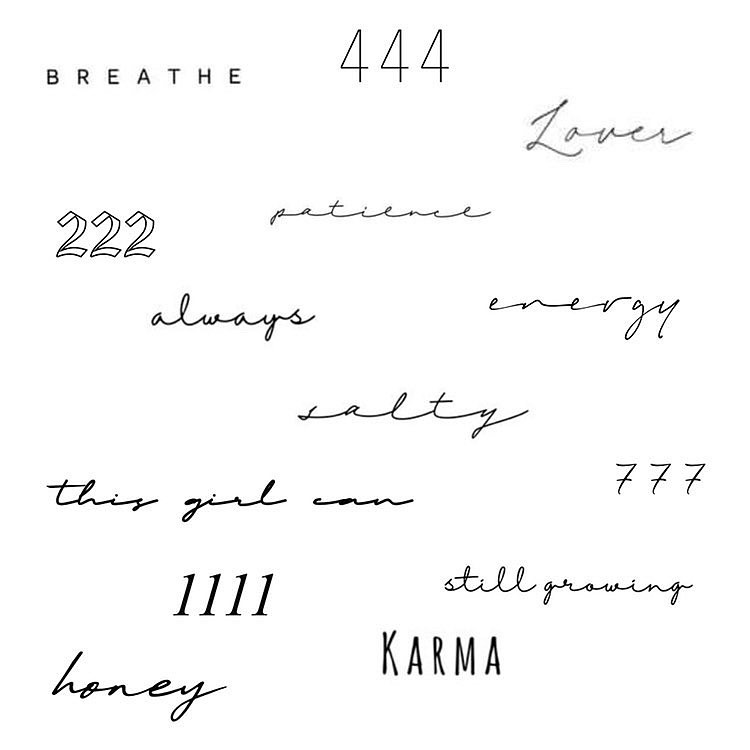 BREATHE
444
Lover
222
patience
always
energy
salty
this girl can
777
1111
still growing
KARMA
honey